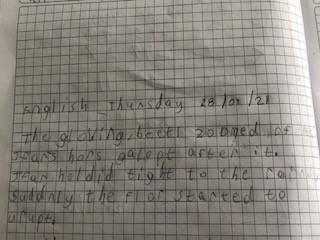 English Thursday 28/01/21
The gloving beetl zoomed of
Jfars hors galopt after it.
Jfar holdid tight to the
Suddnly the flor started to
urupt.